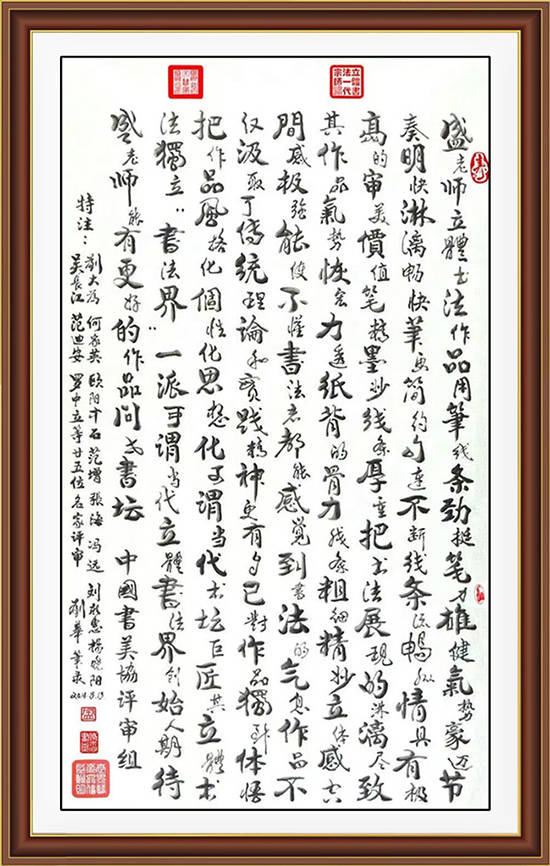 立體書法一代宗師
盛老师立體书法作品用筆线条劲挺笔力雄健氣势豪迈节
奏明快淋漓畅快筆画简约勾連不断线条流暢纵情具有极
高的审美價值笔精墨妙线条厚重把书法展现的淋漓尽致
其作品氣势恢宏力透纸背的骨力线条粗细精妙立体感空
間感极强能使不懂書法者都能感覺到書法的气息作品不
仅汲取了傳统理論和實践精神更有自己對作品獨到体悟
把作品風格化個性化思想化可谓当代书坛巨匠其立體书
法獨立“書法界”一派可谓当代立體書法界创始人期待
盛老师能有更好的作品问世書坛 中國書美協评审组
特注：劉大为 何家英 欧阳中石 范增 張海 冯远 刘 杨晓阳
吴長江 范迪安 罗中立等廿五位名家评审 劉華笔录